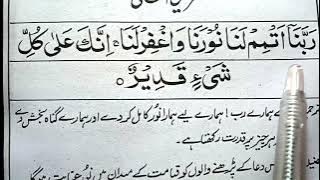 رَبَّنَآ اَتْمِمْ لَنَا نُوْرَنَا وَاغْفِرْ لَنَا ۚ اِنَّكَ عَلٰى كُلِّ
شَىْءٍ قَدِيْرٌ ○
اے ہمارے رب! ہمارے لیے ہمارا نور کامل کر دے اور ہمارے گناہ بخش دے
ہر چیز پر قدرت رکھتا ہے۔
اس دعا کے پڑھنے والوں کو قیامت کے میدان میں